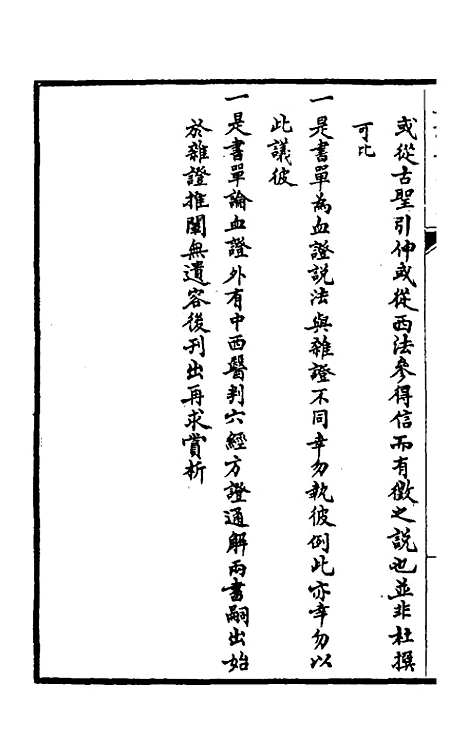 或從古聖引伸或從西法參得信而有徵之說也並非杜撰
可比
一是書單為血證說法與雜證不同幸勿執彼例此亦幸勿以
此議彼
一是書單論血證外有中西醫判六經方證通解兩書嗣出始
於雜證推闡無遺容後刊出再求賞析